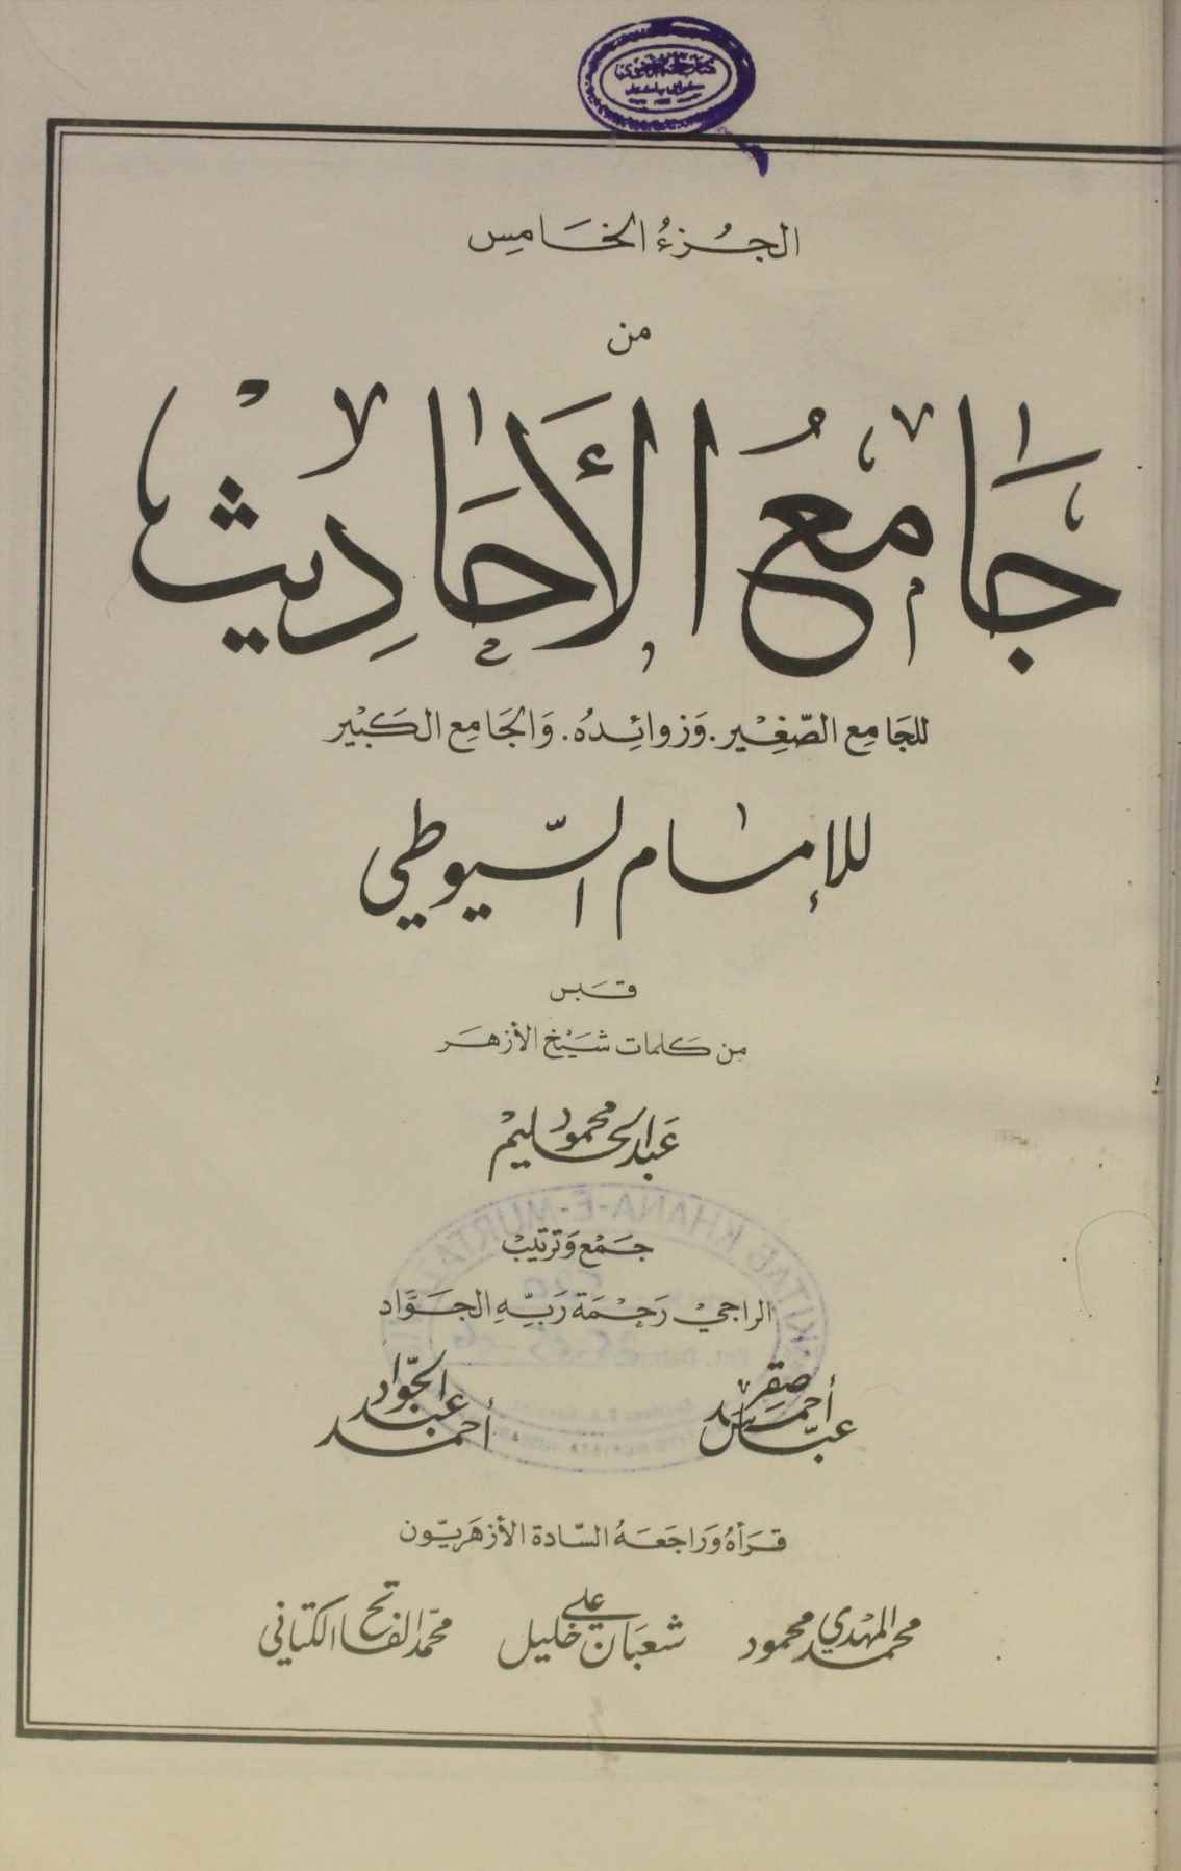 الجُزءُ الخَامِس
من
جَامِعُ الأَحَادِيث
للجَامِع الصَّغِيْر. وَزوائِدهُ. وَالجَامِع الكَبْيْر
للإمام السّيوطي
قَبَس
من كَلمات شَيْخ الأزهَر
عَبدالحليم محمود
جَمْع وَترتيْب
الراجيْ رَحْمَة رَبِّهِ الجَوَّاد
عبّاس أحمد صقر
أحمد عبد الجوّاد
قَرَأهُ وَرَاجَعَهُ السَّادة الأزهَريّون
محمد المهْدي محمود
شعبَان علي خليل
محمّد الفاتح الكتاني
KITAB KHANA-E-MURTAZ